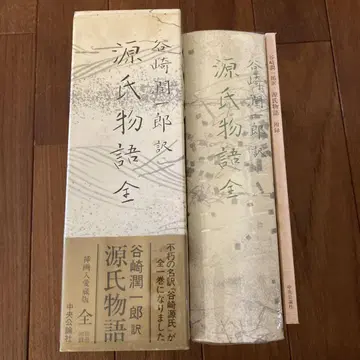 谷崎潤一郎訳
源氏物語 全
不朽の名訳〝谷崎源氏〟が
全一巻になりました
谷崎潤一郎訳
源氏物語
挿画入愛蔵版 全
中央公論社
谷崎潤一郎訳
源氏物語 全
谷崎潤一郎訳 源氏物語 附録
中央公論社